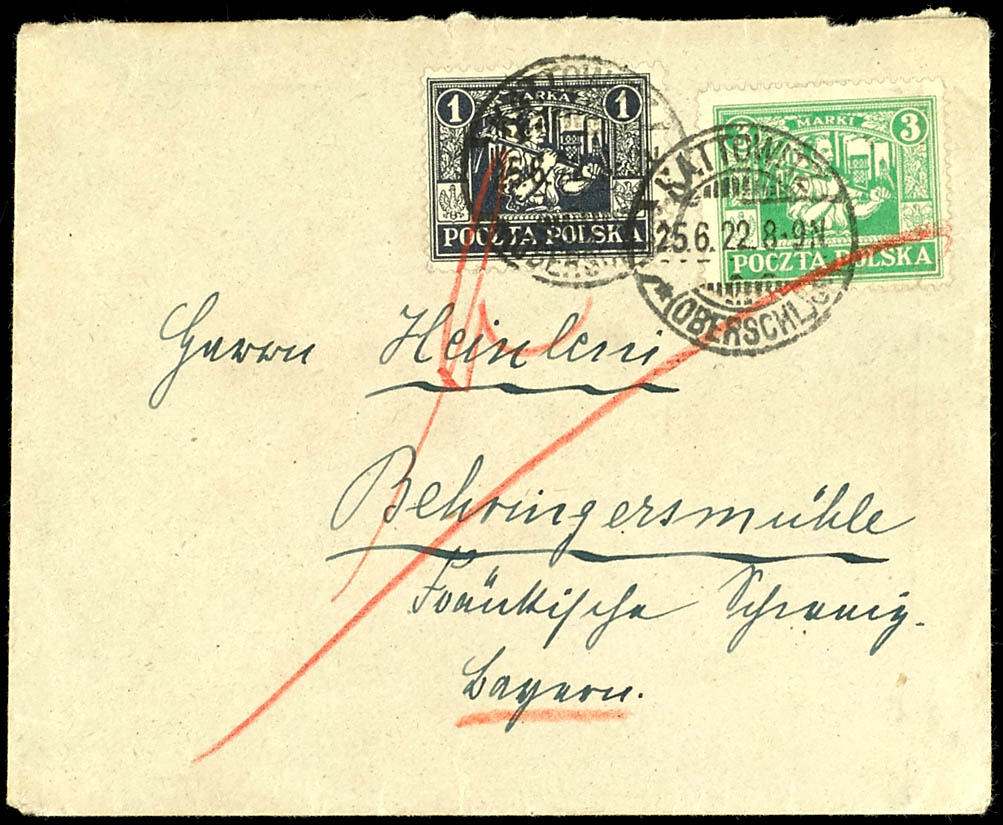 1 MARKA 1
POCZTA POLSKA
MARKI 3
POCZTA POLSKA
KATTOWITZ
25.6.22.8-9N
(OBERSCHL.)
Herrn Heinlein
Behringersmühle
Fränkische Schweiz.
Bayern.